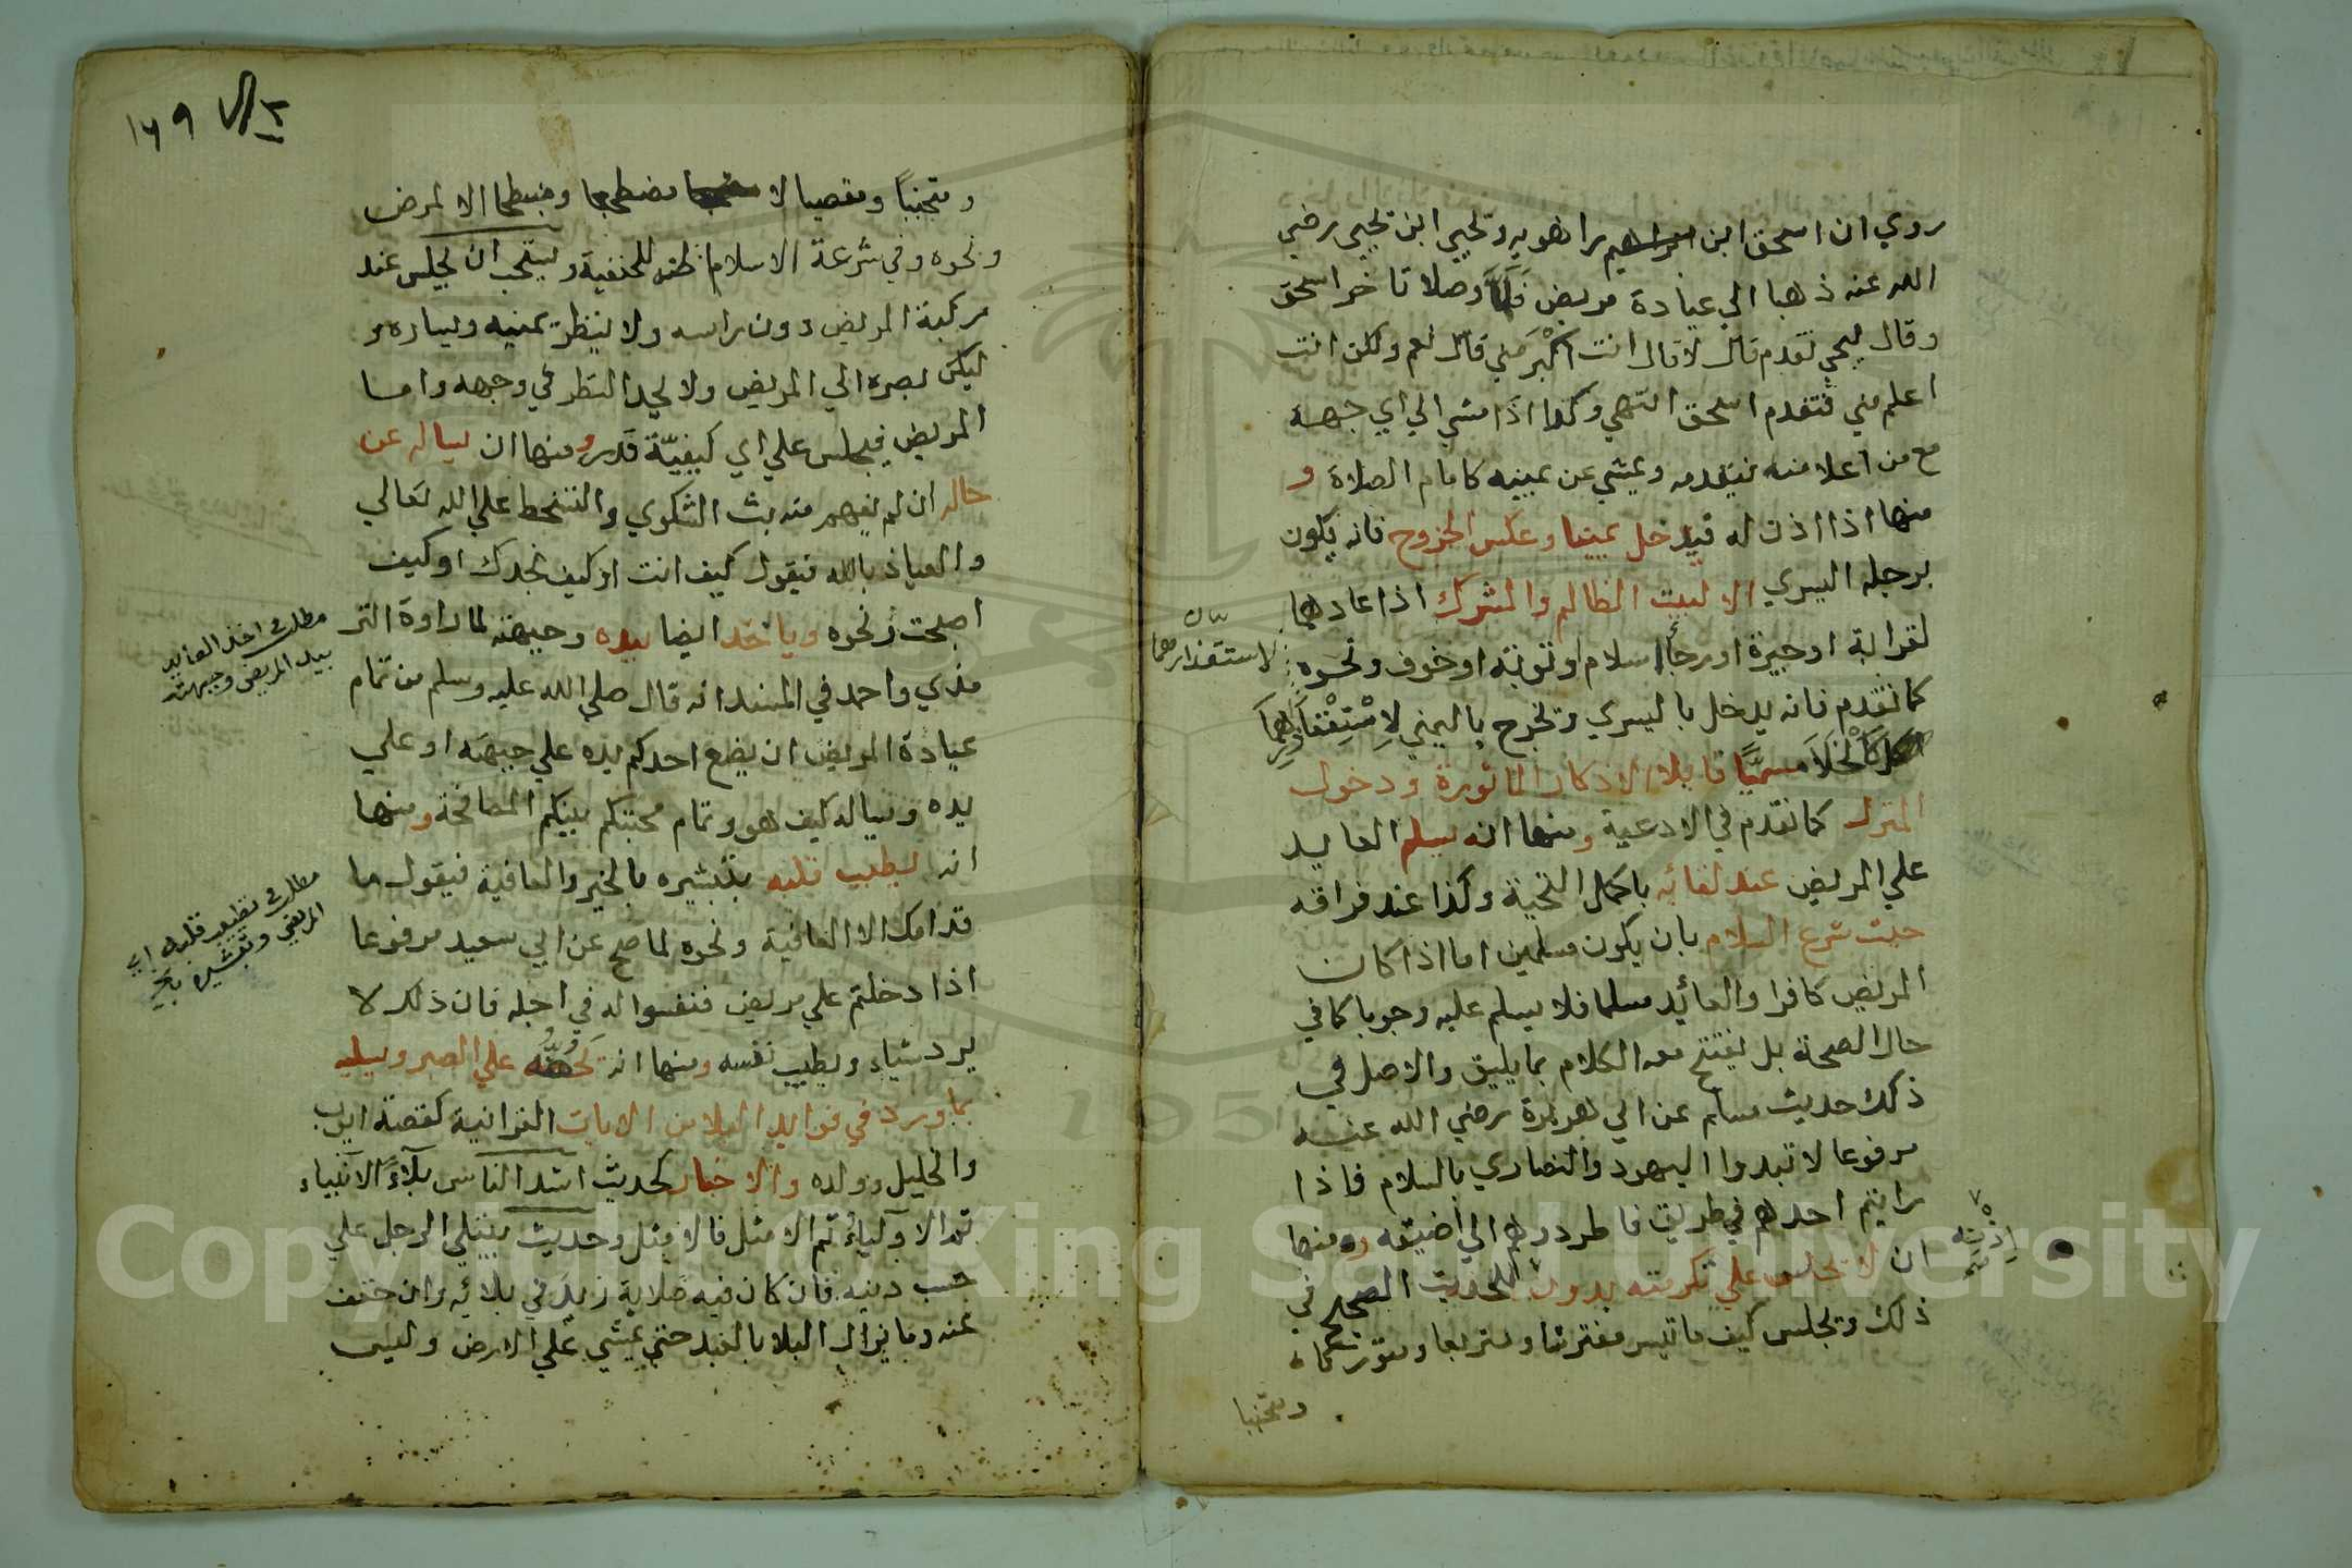 روي ان اسحق ابن راهويه ويحيي ابن يحيي رضي
الله عنه ذهبا الي عيادة مريض فلما وصلا تاخر اسحق
وقال ليحي تقدم قال لا قال انت اكبر مني قال نعم ولكن انت
اعلم مني فتقدم اسحق انتهي وكذا اذا مشي الي اي جهة
مع من اعلا منه فيقدمه ويمشي عن يمينه كامام الصلاة و
منها اذا اذن له فيدخل يمينا وعكس الخروج فانه يكون
برجله اليسري الا لبيت الظالم والمشرك اذا عادهما
لقرابة او جيرة او رجا اسلام او توبة او خوف ونحوه
لاستقذارهما
كما تقدم فانه يدخل باليسري ويخرج باليمني لاستقذارهما
كالخلا مسميا قايلا الاذكار الماثورة ودخول
المنزل كما تقدم في الادعية ومنها انه يسلم العايد
علي المريض عند لقائه باكمل التحية وكذا عند فراقه
حيث شرع السلام بان يكون مسلمين اما اذا كان
المريض كافرا والعائد مسلما فلا يسلم عليه وجوبا كما في
حال الصحة بل يفتتح معه الكلام بما يليق والاصل في
ذلك حديث مسلم عن ابي هريرة رضي الله عنه
مرفوعا لا تبدوا اليهود والنصاري بالسلام فاذا
رايتم احدهم في طريق فاطردوهم الي اضيقه ومنها
ان لا يجلس علي تكرمته بدون للحديث الصحيح في
اذنه
ذلك ويجلس كيف ما تيسر مفترشا ومتربعا ومتوركا
ومتجنبا
١٦٩
ومتجنبا ومقعيا لا مضطجعا ومنبطحا الا لمرض
ونحوه وفي شرعة الاسلام اظنه للحنفية ويستحب ان يجلس عند
ركبة المريض دون راسه ولا ينظر يمينه ويساره و
ليكن بصره الي المريض ولا يحد النظر في وجهه واما
المريض فيجلس علي اي كيفية قدر ومنها ان يساله عن
حاله ان لم يفهم منه بث الشكوي والتسخط علي الله تعالي
والعياذ بالله فيقول كيف انت او كيف نجدك او كيف
اصبحت ونحوه وياخذ ايضا بيده وجبهته لما رواه التر
مطلب اخذ العايد
بيد المريض وجبهته
مذي واحمد في المسند انه قال صلي الله عليه وسلم من تمام
عيادة المريض ان يضع احدكم يده علي جبهته او علي
يده ويساله كيف هو وتمام محبتكم بينكم المصافحة ومنها
انه يطيب قلبه بتبشيره بالخير والعافية فيقول ما
مطلب تطييب قلب
المريض وتبشيره بخير
قدامك الا العافية ونحوه لما صح عن ابي سعيد مرفوعا
اذا دخلتم علي مريض فنفسوا له في اجله فان ذلك لا
يرد شياء ويطيب نفسه ومنها انه يحثه علي الصبر ويسليه
بما ورد في فوايد البلا من الايات القرانية كقصة ايوب
والخليل وولده والاخبار كحديث اشد الناس بلاء الانبياء
ثم الاولياء ثم الامثل فالامثل وحديث يبتلي الرجل علي
حسب دينه فان كان فيه صلابة زيد في بلائه وان خفف
عنه وما يزال البلا بالعبد حتي يمشي علي الارض وليس
Copyright © King Saud University